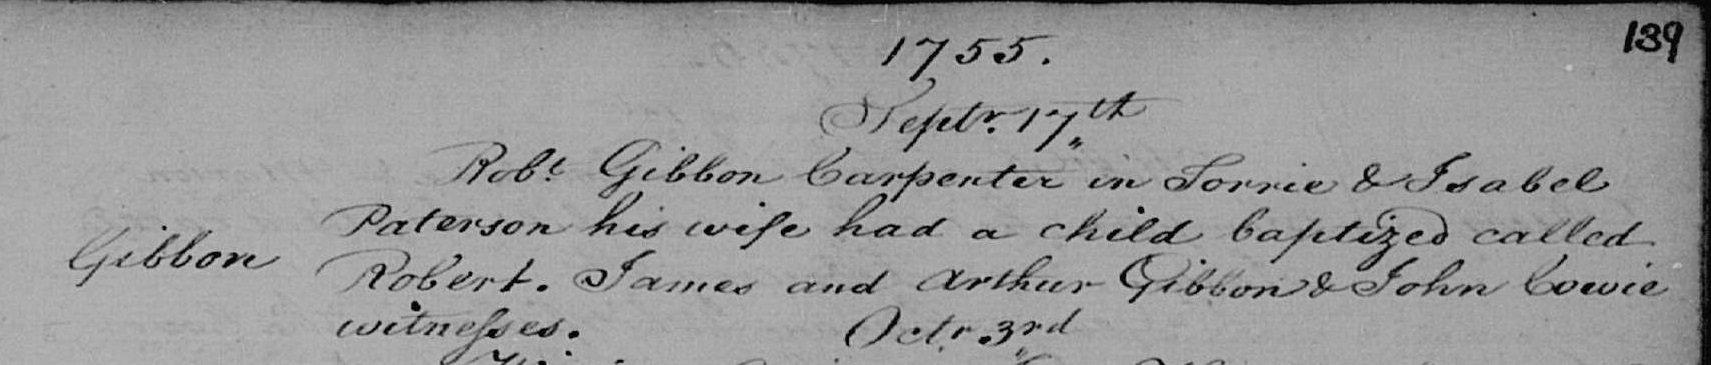 139
1755.
Septr. 17th
Robt. Gibbon Carpenter in Torrie & Isabel
Paterson his wife had a child baptized called
Gibbon Robert. James and Arthur Gibbon & John Cowie
witnesses. Octr. 3rd